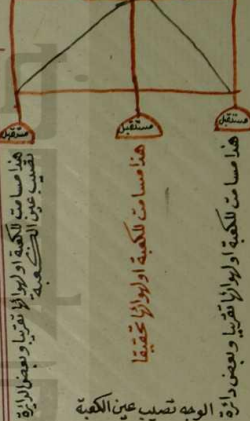 مستقبل
مستقبل
مستقبل
هذا مسامت للكعبة او لهوائها تقريبا وبعض دائرة
الوجه تصيب عين الكعبة
هذا مسامت للكعبة او لهوائها تحقيقا
هذا مسامت للكعبة او لهوائها تقريبا وبعض الدائرة
تصيب عين الكعبة